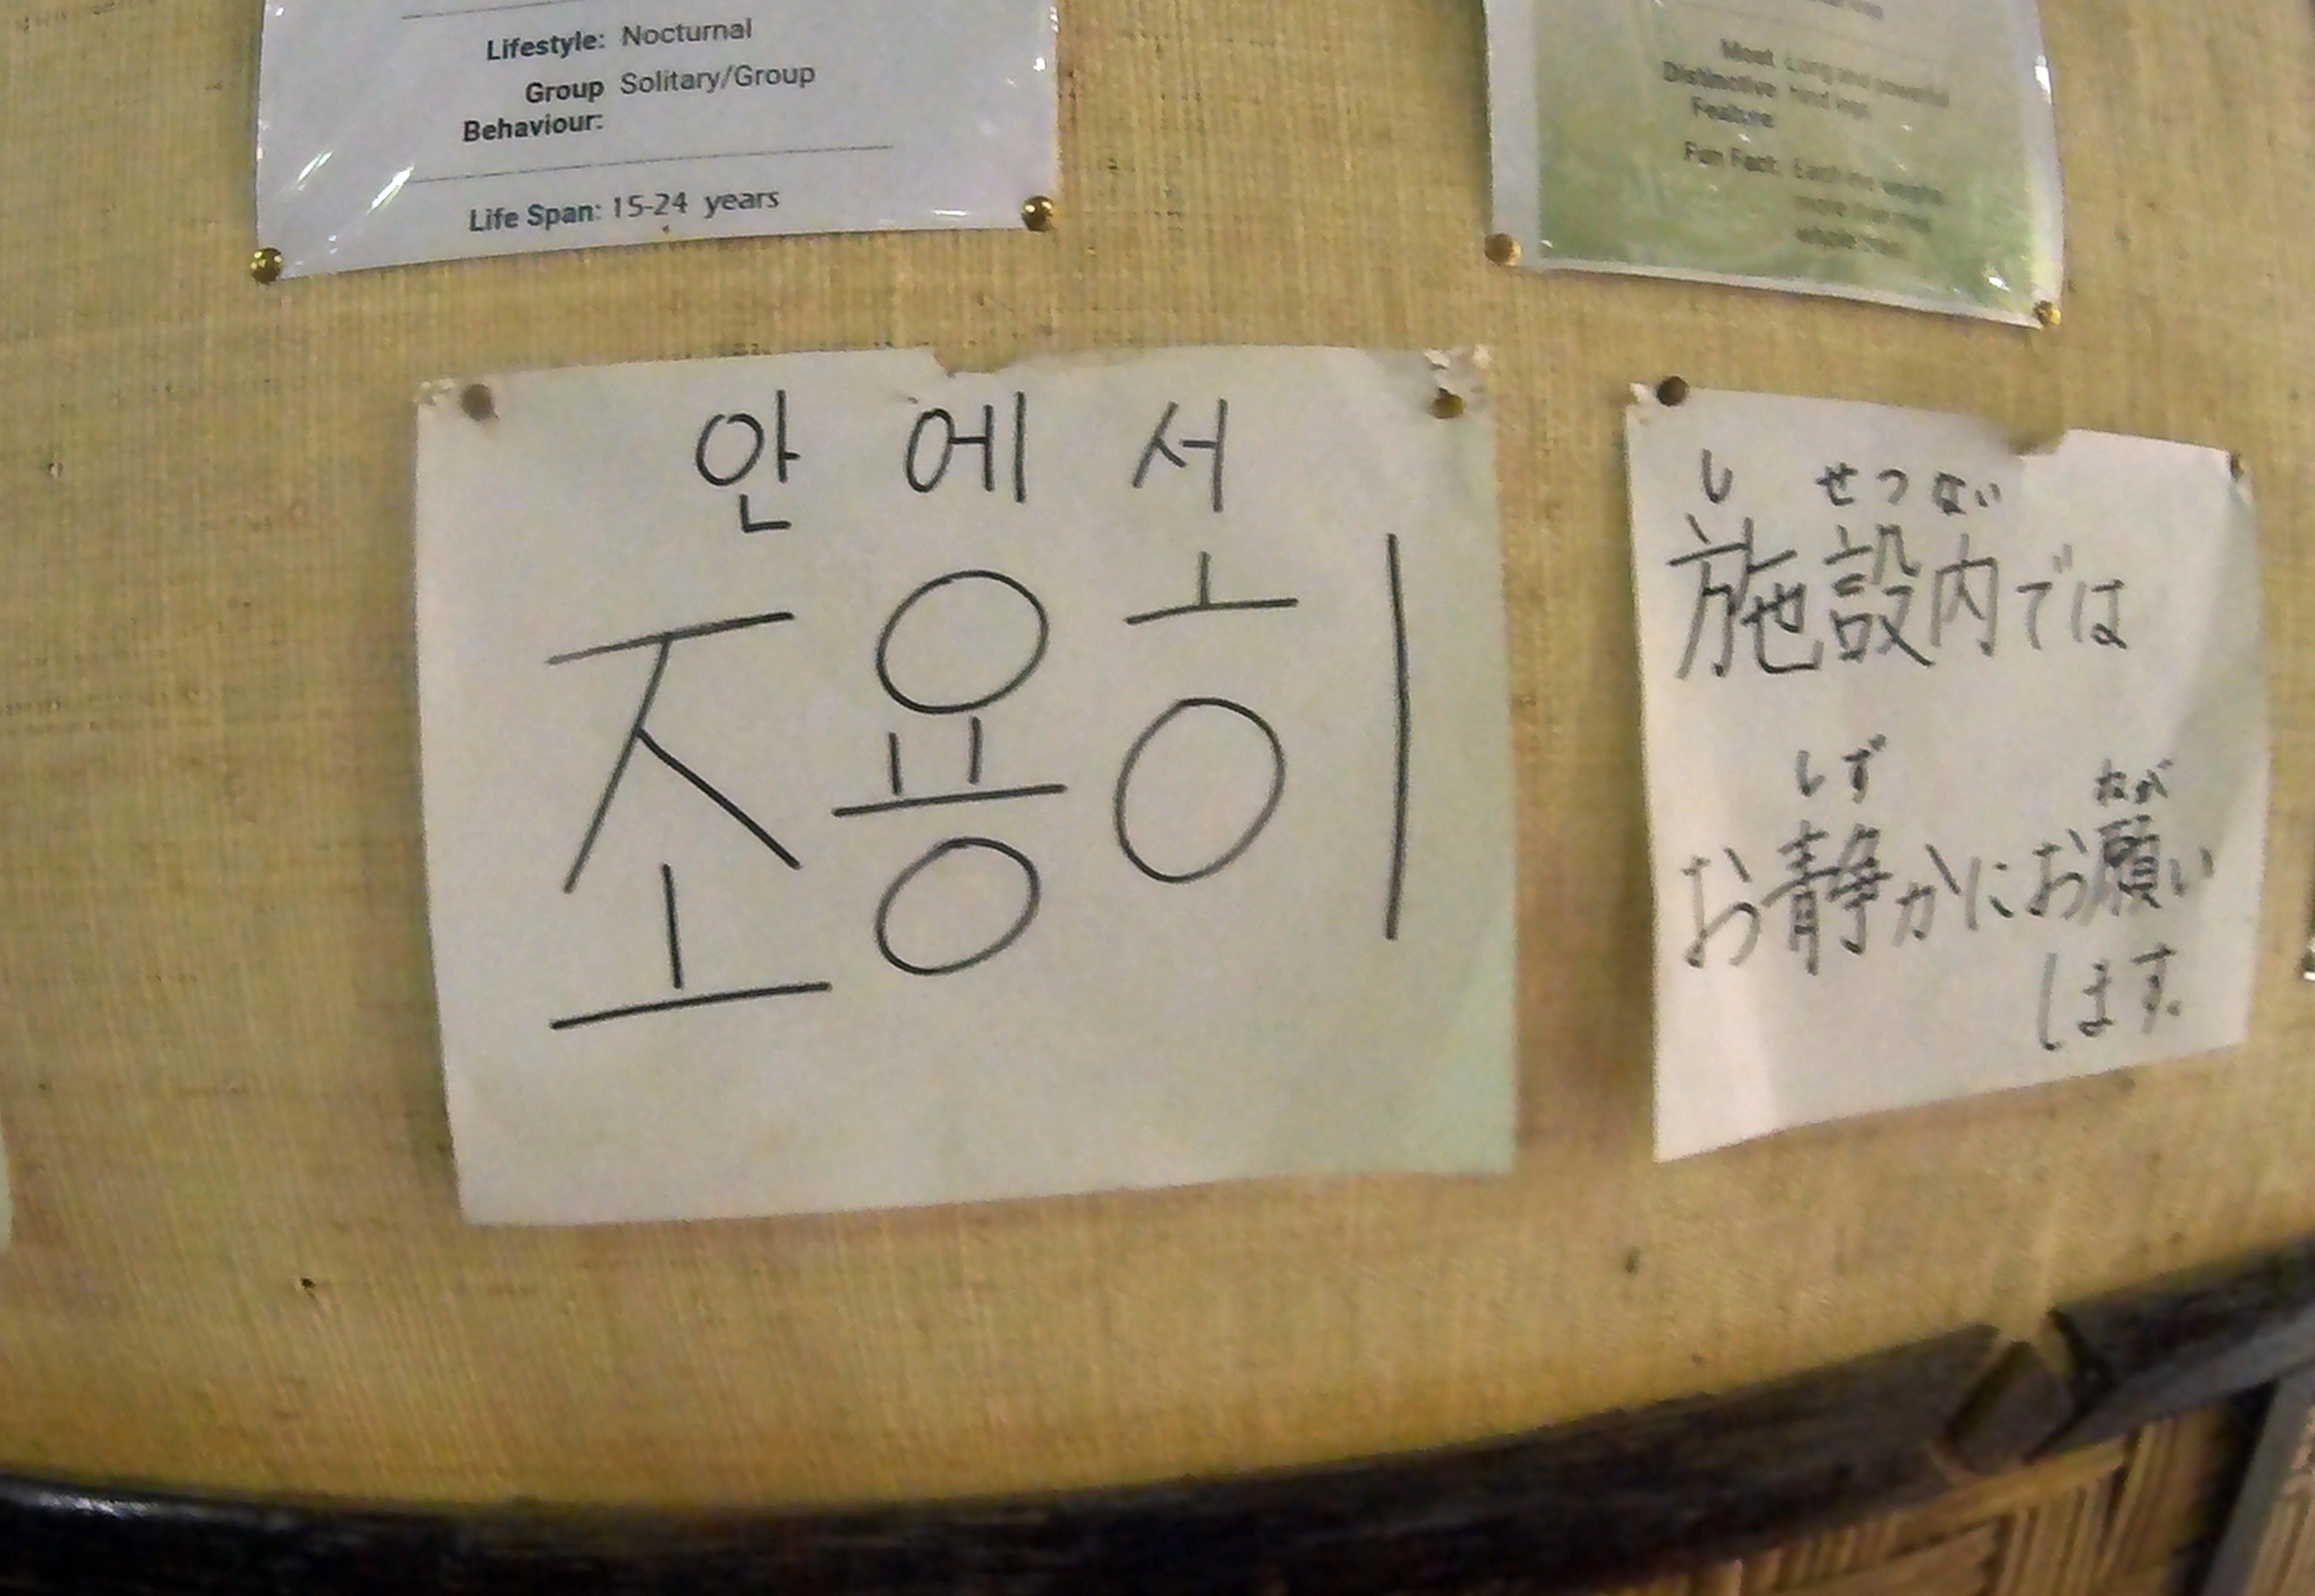 Lifestyle: Nocturnal
Group Solitary/Group
Behaviour:
Life Span: 15-24 years
Most Long and powerful
Distinctive hind legs
Feature
Fun Fact: Each eye weighs
more than
whole brain
안에서
조용히
し せつ ない
施設内では
しず ねが
お静かにお願い
します。